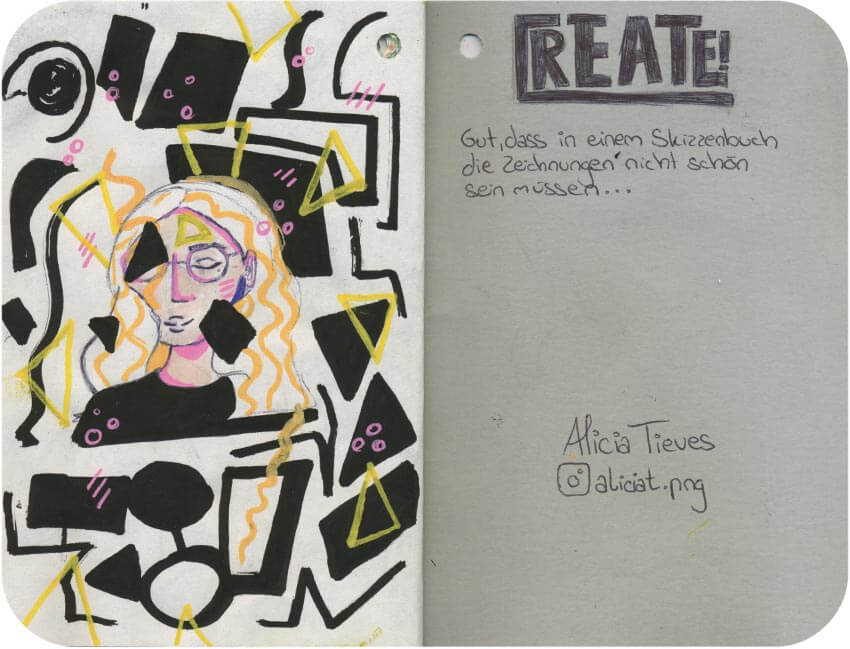 CREATE!
Gut, dass in einem Skizzenbuch
die Zeichnungen nicht schön
sein müssen...
Alicia Tieves
aliciat.png